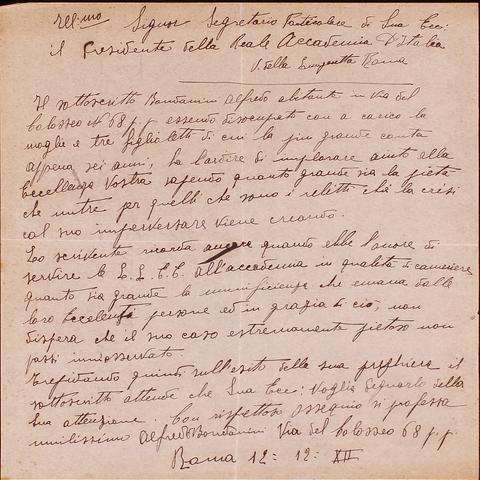 Ill.mo Signor Segretario Particolare di Sua Ecc:
il Presidente della Reale Accademia D'Italia
V. della Lungaretta Roma
Il sottoscritto Bondanini Alfredo abitante in Via del
Colosseo N 68 p.p essendo disoccupato con a carico la
moglie e tre figlioletti di cui la più grande conta
appena sei anni, ha l'ardire di implorare aiuto alla
Eccellenza Vostra sapendo quanto grande sia la pietà
che nutre per quelli che sono i reletti che la crisi
col suo imperversare viene creando.
Lo scrivente ricorda ancora quando ebbe l'onore di
servire le L.L.E.E. all'accademia in qualità di cameriere
quanto sia grande la munificienza che emana dalle
loro Eccellenze persone ed in grazia di ciò, non
dispera che il suo caso estremamente pietoso non
passi innosservato.
Trepidando quindi sull'esito della sua preghiera il
sottoscritto attende che Sua Ecc: Voglia degnarlo della
Sua attenzione. Con rispettoso ossequio si professa
umilissimo Alfredo Bondanini Via del Colosseo 68 p.p.
Roma 12 = 12 = XII